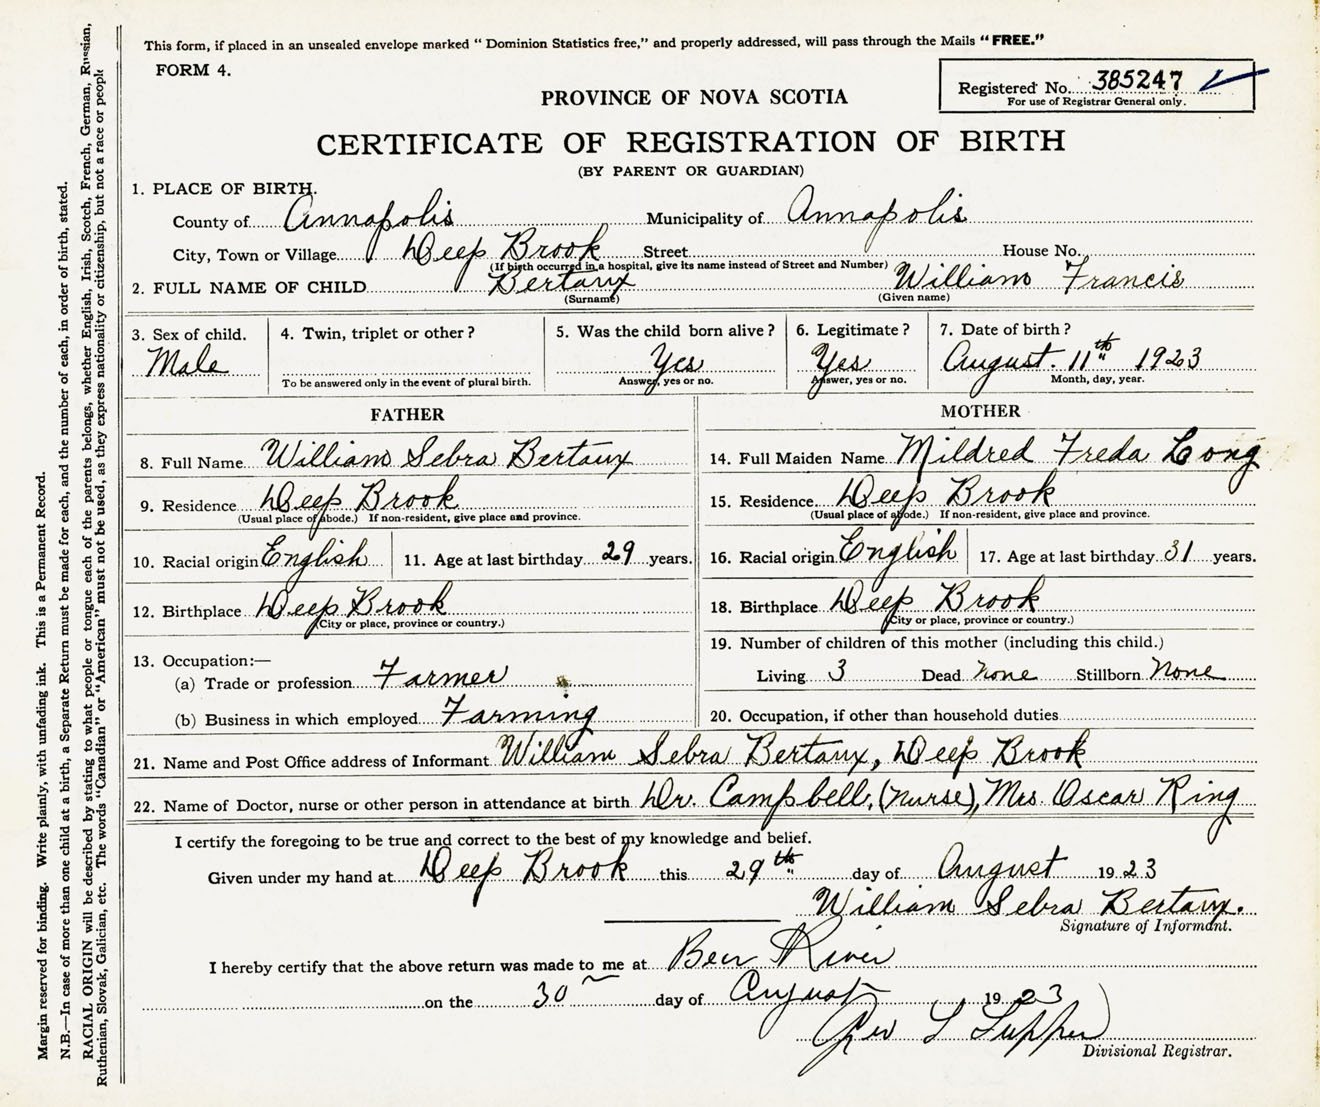 This form, if placed in an unsealed envelope marked “ Dominion Statistics free,” and properly addressed, will pass through the Mails “ FREE.”
FORM 4.
Registered No. 385247
For use of Registrar General only.
PROVINCE OF NOVA SCOTIA
CERTIFICATE OF REGISTRATION OF BIRTH
(BY PARENT OR GUARDIAN)
1. PLACE OF BIRTH.
County of Annapolis Municipality of Annapolis
City, Town or Village Deep Brook Street House No.
(If birth occurred in a hospital, give its name instead of Street and Number)
2. FULL NAME OF CHILD Bertaux William Francis
(Surname) (Given name)
3. Sex of child. 4. Twin, triplet or other ? 5. Was the child born alive ? 6. Legitimate ? 7. Date of birth ?
Male Yes Yes August. 11th 1923
To be answered only in the event of plural birth. Answer, yes or no. Answer, yes or no. Month, day, year.
FATHER MOTHER
8. Full Name William Sebra Bertaux 14. Full Maiden Name Mildred Freda Long
9. Residence Deep Brook 15. Residence Deep Brook
(Usual place of abode.) If non-resident, give place and province. (Usual place of abode.) If non-resident, give place and province.
10. Racial origin English 11. Age at last birthday 29 years. 16. Racial origin English 17. Age at last birthday 31 years.
12. Birthplace Deep Brook 18. Birthplace Deep Brook
(City or place, province or country.) (City or place, province or country.)
19. Number of children of this mother (including this child.)
13. Occupation:—
Living 3 Dead None Stillborn None
(a) Trade or profession Farmer
(b) Business in which employed Farming 20. Occupation, if other than household duties
21. Name and Post Office address of Informant William Sebra Bertaux, Deep Brook
22. Name of Doctor, nurse or other person in attendance at birth Dr. Campbell, (nurse), Mrs. Oscar Ring
I certify the foregoing to be true and correct to the best of my knowledge and belief.
Given under my hand at Deep Brook this 29th day of August 1923
William Sebra Bertaux.
Signature of Informant.
I hereby certify that the above return was made to me at Bear River
on the 30 day of August 1923
L Tupper
Divisional Registrar.
Margin reserved for binding. Write plainly, with unfading ink. This is a Permanent Record.
N.B.—In case of more than one child at a birth, a Separate Return must be made for each, and the number of each, in order of birth, stated.
RACIAL ORIGIN will be described by stating to what people or tongue each of the parents belongs, whether English, Irish, Scotch, French, German, Russian,
Ruthenian, Slovak, Galician, etc. The words “Canadian” or “American” must not be used, as they express nationality or citizenship, but not a race or people